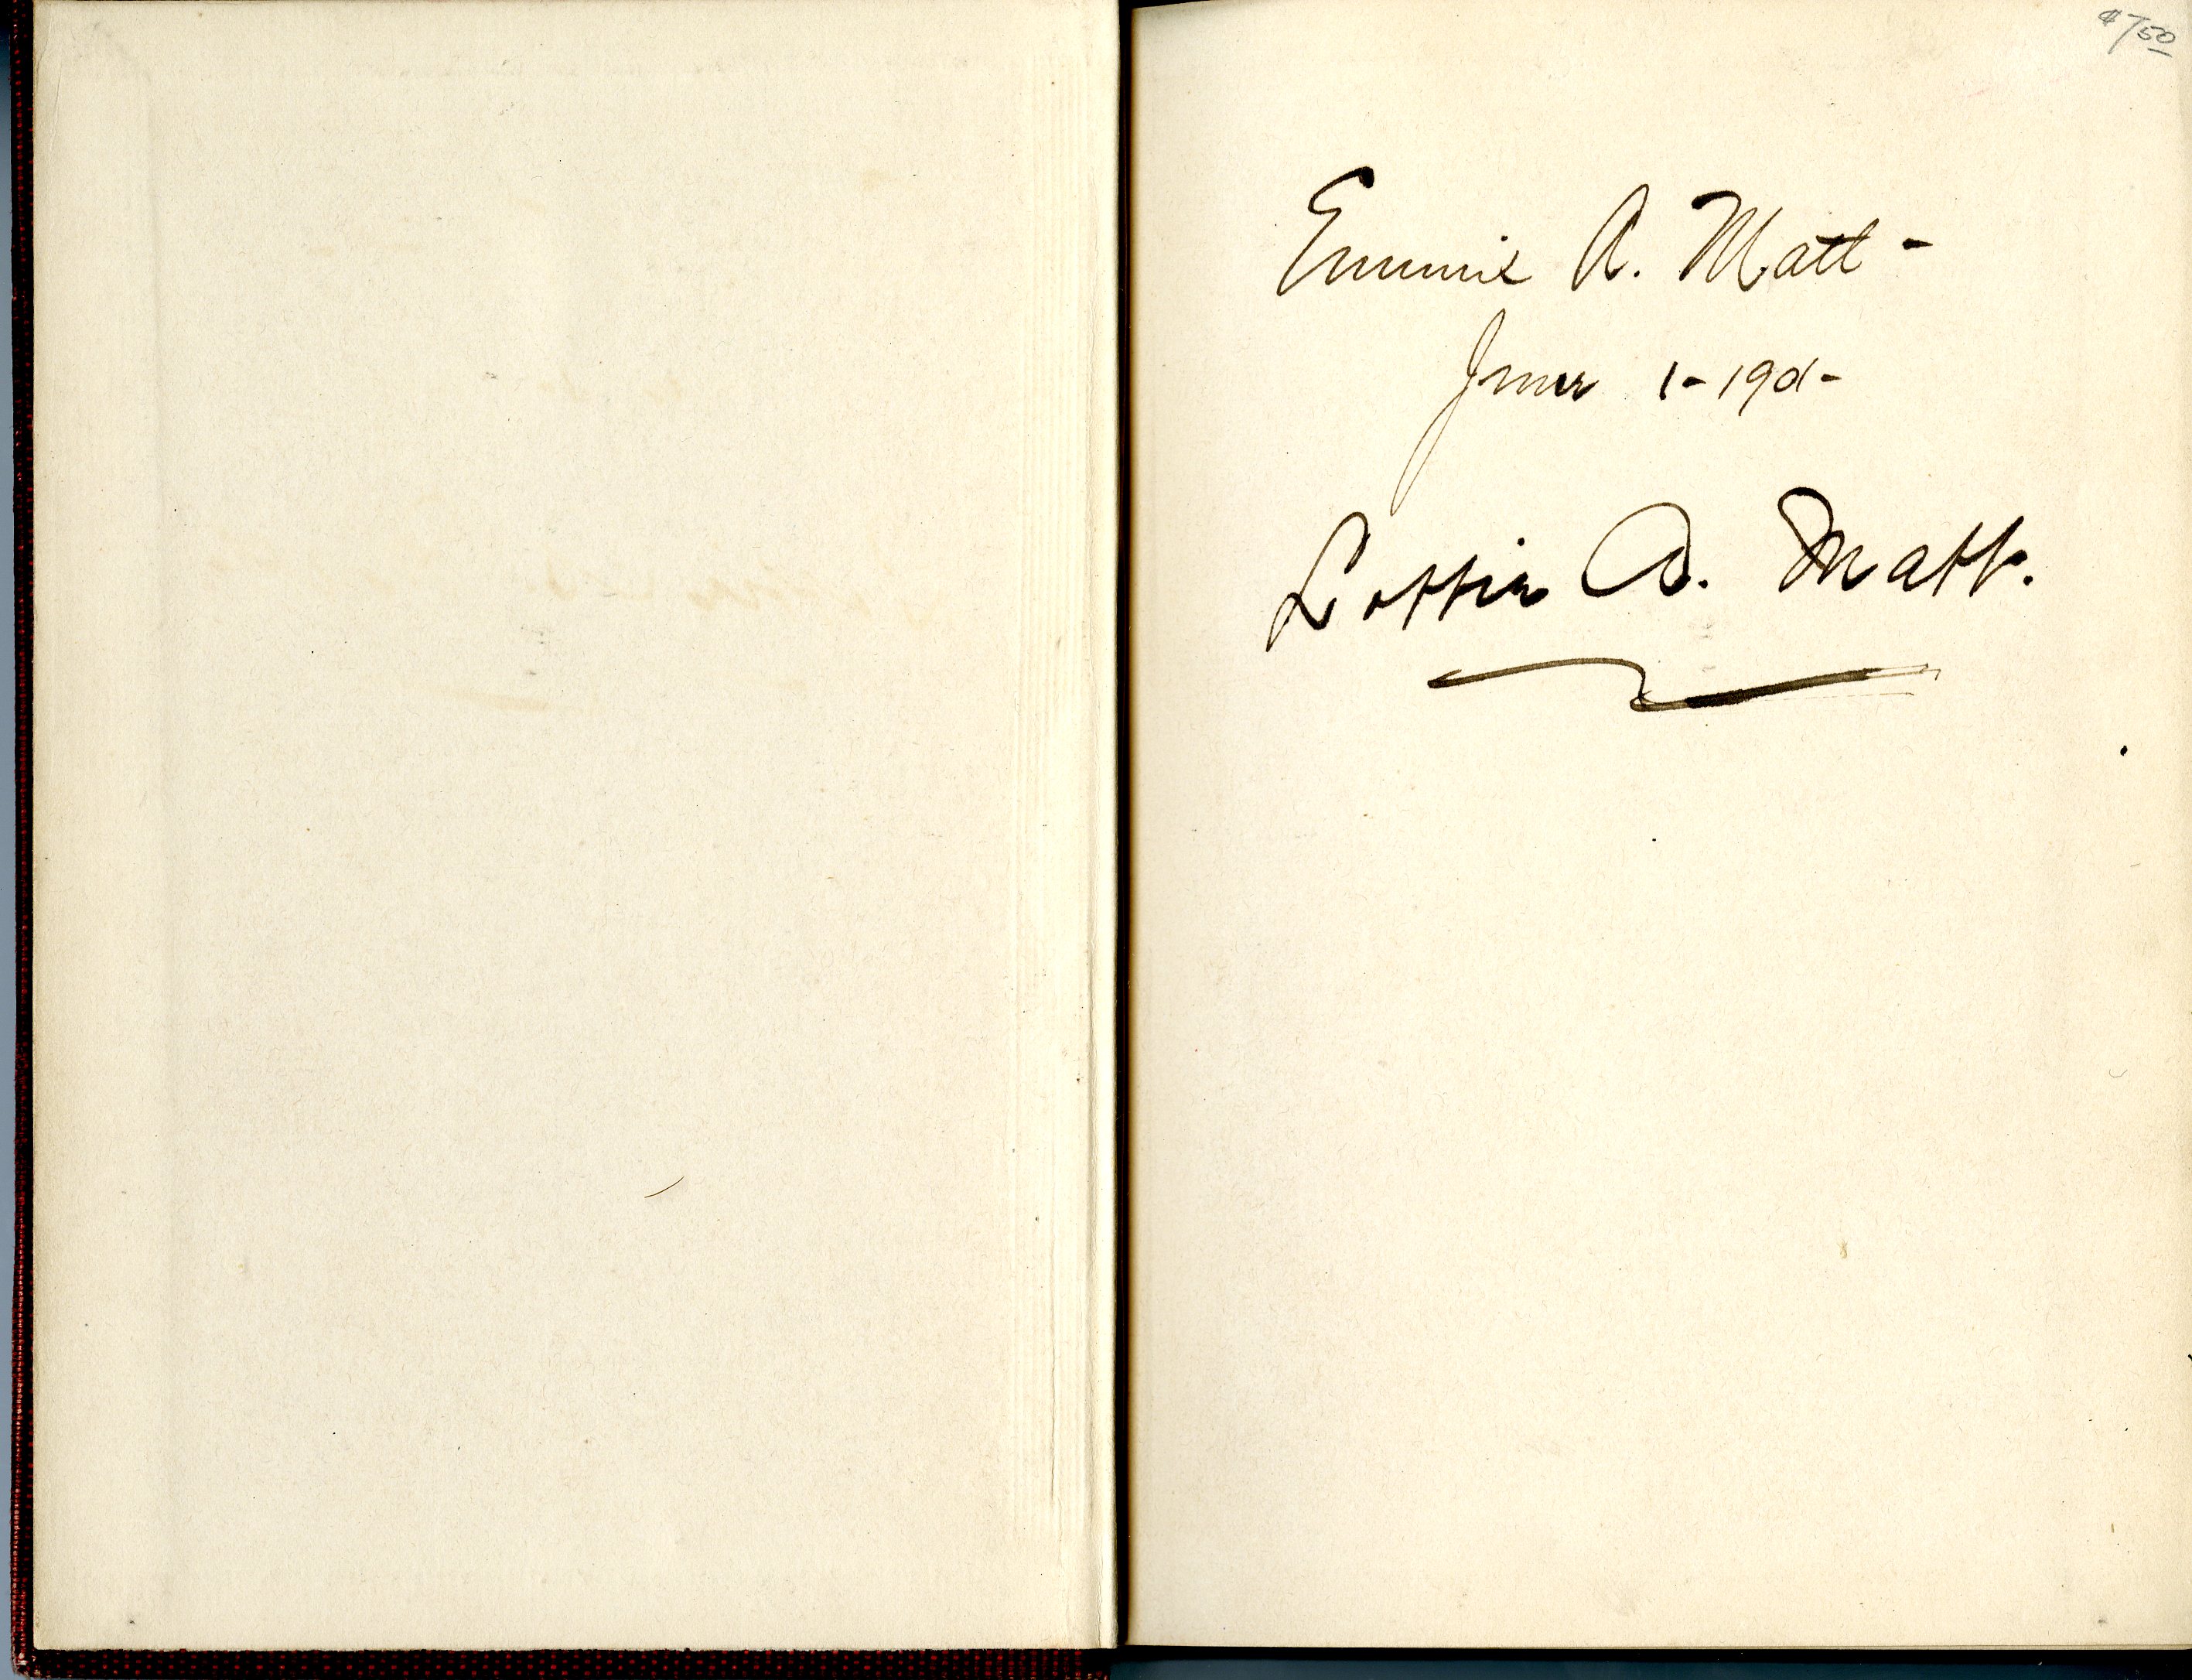 $7.50
Emmie A. Matt -
June 1 - 1901 -
Lottie A. Matt.